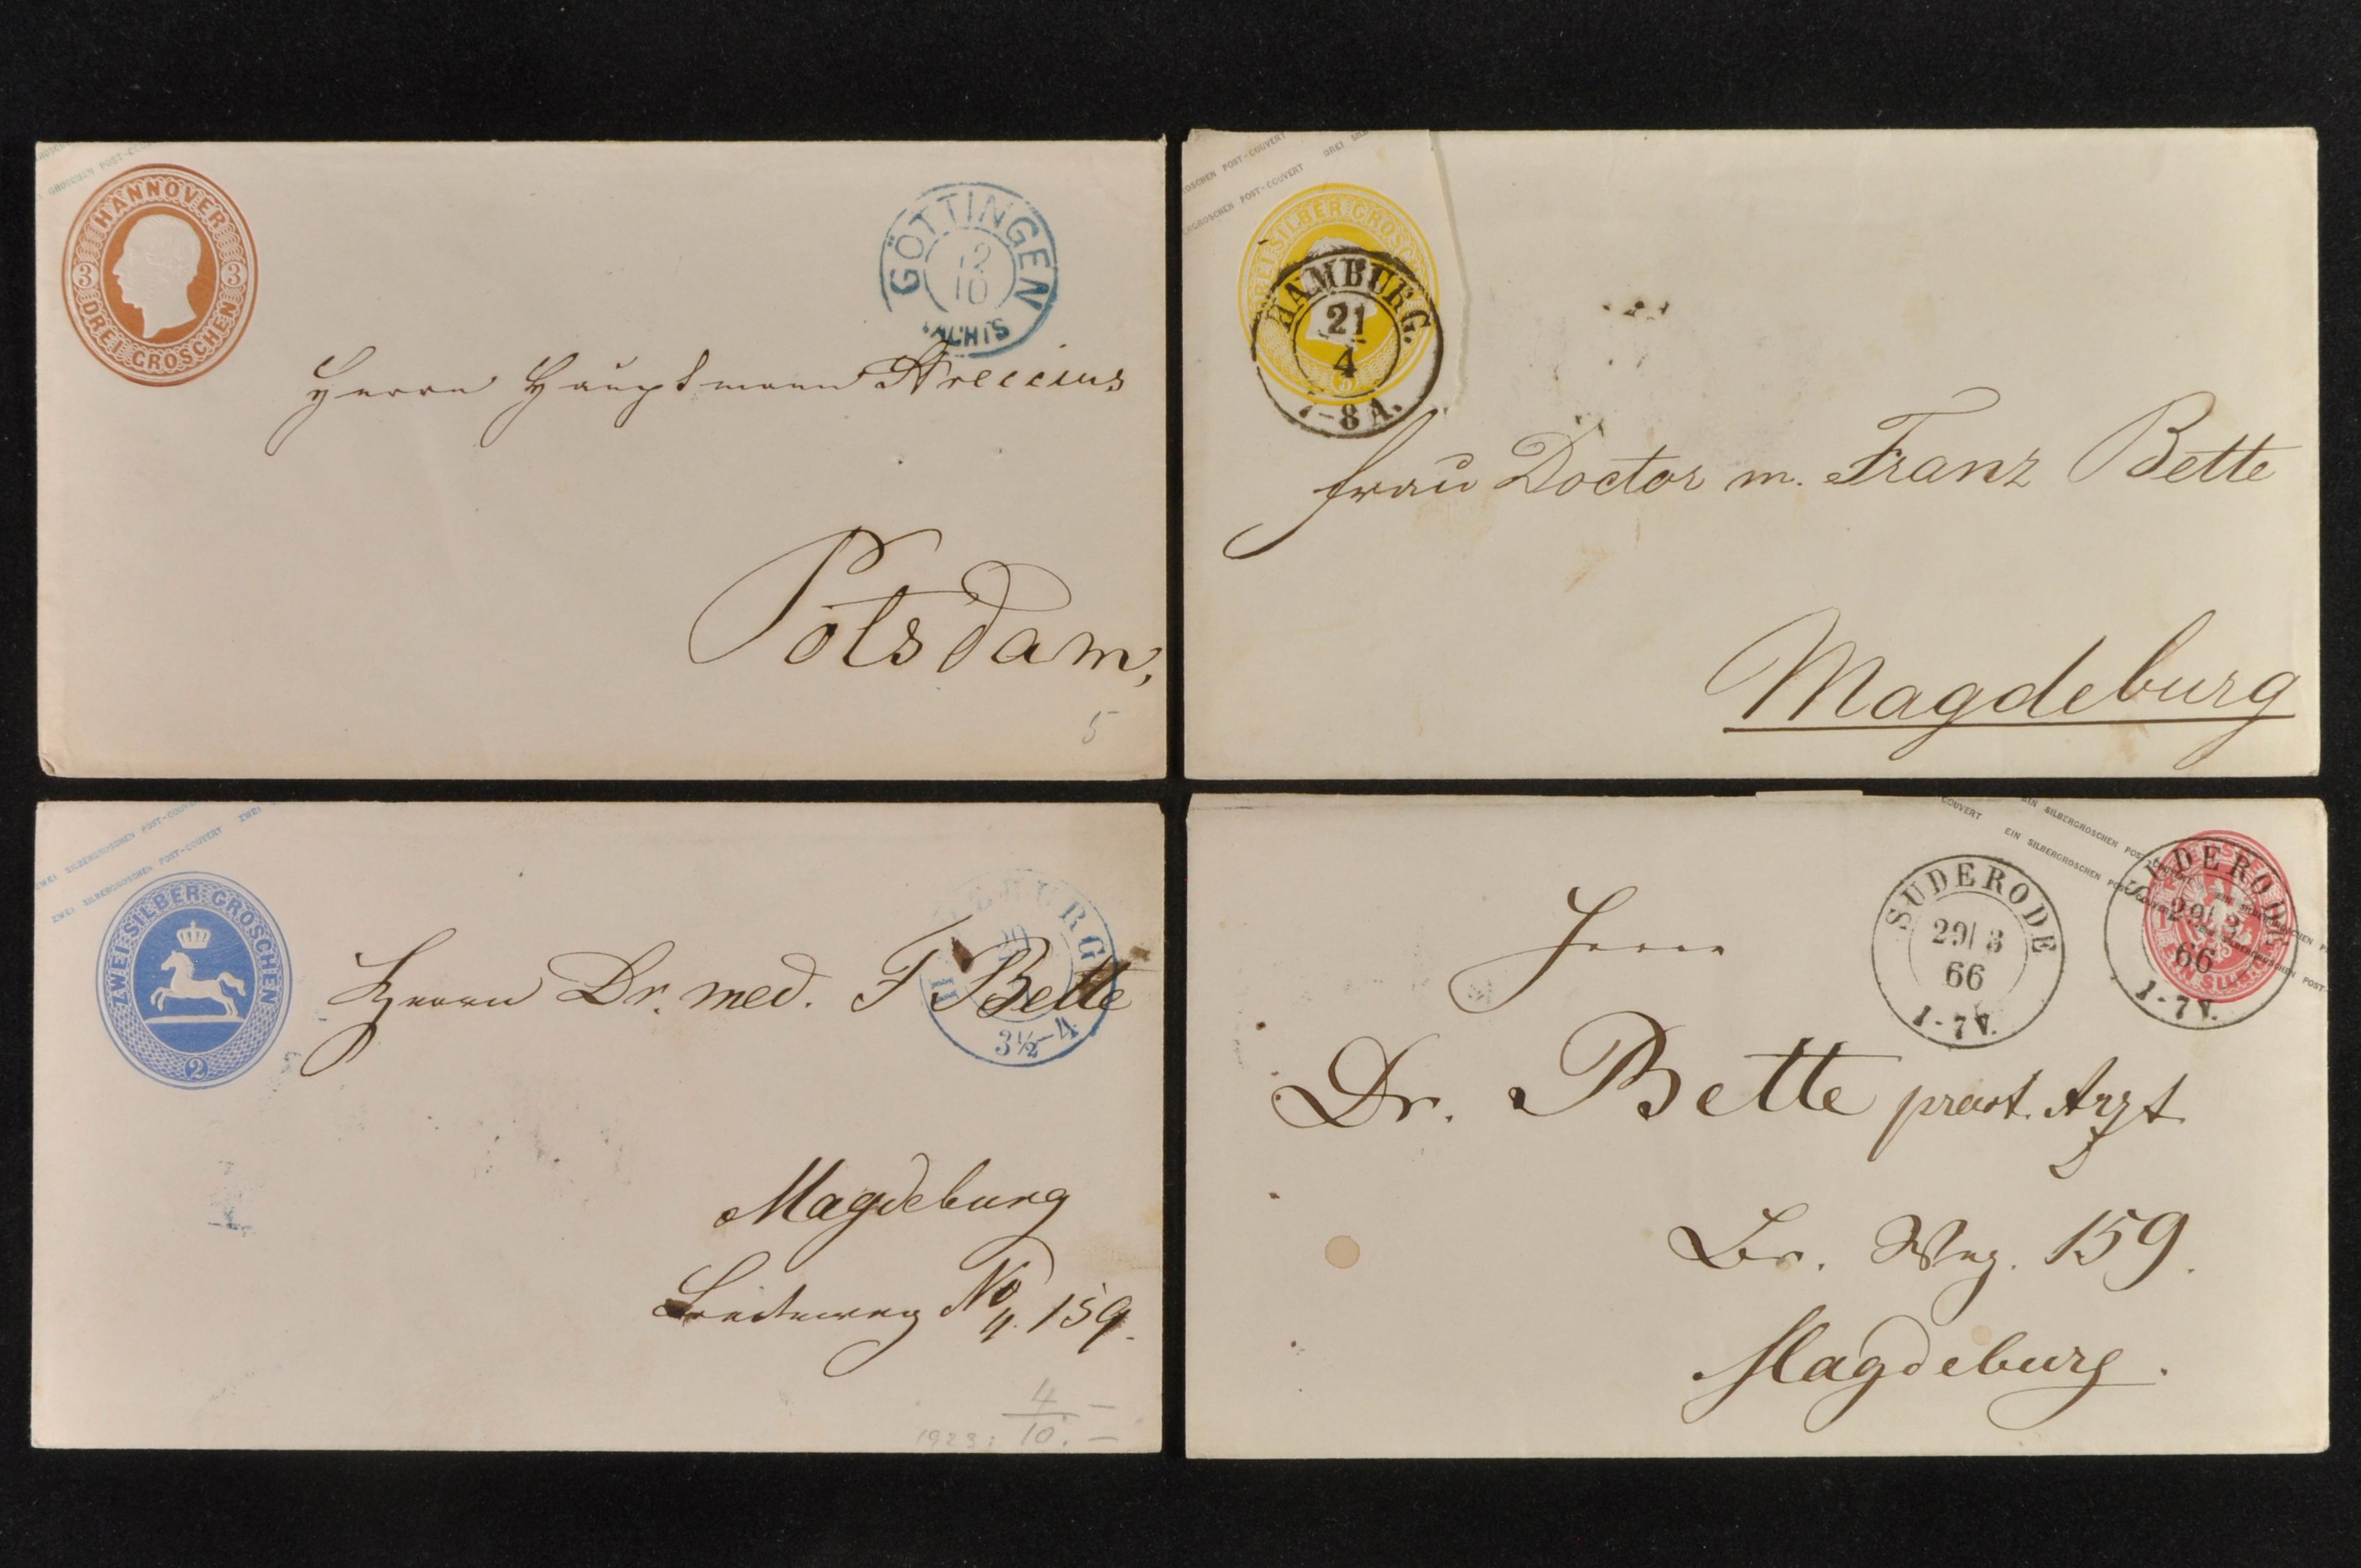 GROSCHEN POST-COUVERT
HANNOVER
3 3
DREI GROSCHEN
GÖTTINGEN
12
10
NACHTS
Herrn Hauptmann
Potsdam,
5
GROSCHEN POST-COUVERT DREI SILB
ERGROSCHEN POST-COUVERT
DREI SILBER GROSCHEN
3
HAMBURG.
21
4
7-8 A.
Frau Doctor m. Franz Bette
Magdeburg
ZWEI SILBERGROSCHEN POST-COUVERT ZWEI
ZWEI SILBERGROSCHEN POST-COUVERT
ZWEI SILBER GROSCHEN
2
BURG
3½-4
Herrn Dr. med. F Bette
Magdeburg
Breiteweg No 159.
4 –
1923: 10. –
COUVERT EIN SILBERGROSCHEN POST
EIN SILBERGROSCHEN POST-COUVERT
SUDERODE
29|3
66
1-7 V.
SUDERODE
29|3
66
1-7 V.
Herrn
Dr. Bette pract. Arzt
Br. Weg. 159.
Magdeburg.